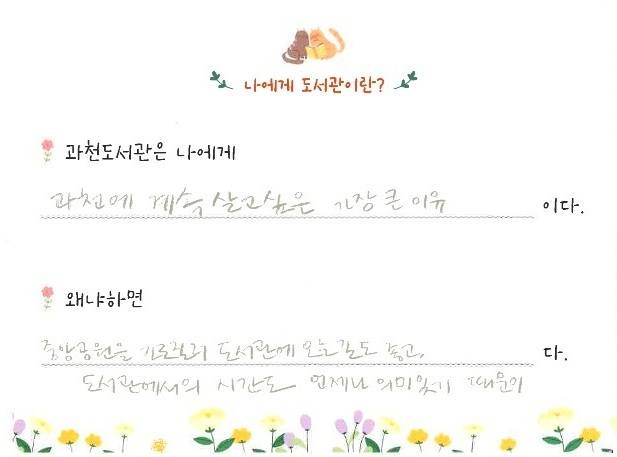 나에게 도서관이란?
과천도서관은 나에게
과천에 계속 살고싶은 가장 큰 이유 이다.
왜냐하면
중앙공원을 가로질러 도서관에 오는길도 좋고, 다.
도서관에서의 시간도 언제나 의미있기 때문이